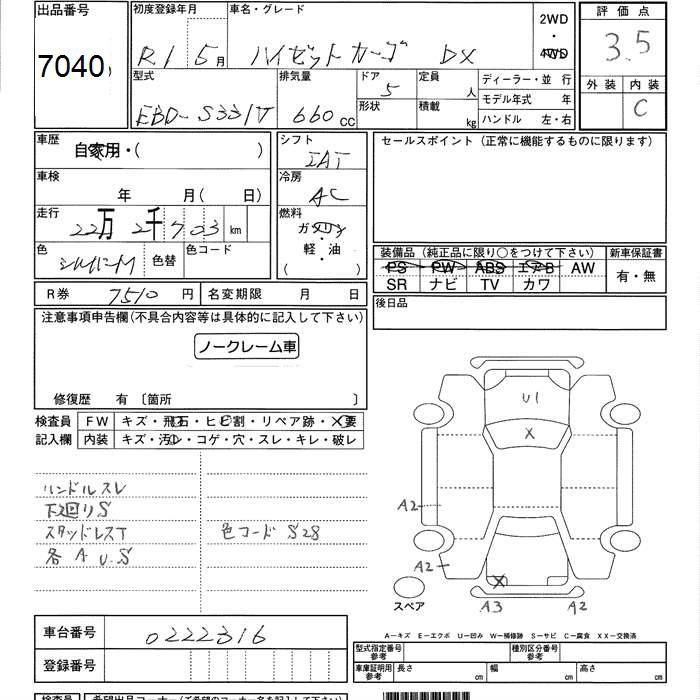 出品番号 初度登録年月 車名・グレード 2WD・4WD 評価点
7040 R1 5月 ハイゼットカーゴ DX 3.5
型式 排気量 ドア 定員 人 ディーラー・並行 外装 内装
EBD-S331V 660cc 5 形状 積載 kg モデル年式 年 C
ハンドル 左・右
車歴 自家用・( ) シフト IAT セールスポイント(正常に機能するものに限ります)
車検 年 月(日) 冷房 AC
走行 22万2千703km 燃料 ガソリン
軽・油
( )
色 シルバーM 色替 色コード
装備品(純正品に限り○をつけて下さい) 新車保証書
PS PW ABS エアB AW 有・無
SR ナビ TV カワ
R券 7510円 名変期限 月 日 後日品
注意事項申告欄(不具合内容等は具体的に記入して下さい)
ノークレーム車
修復歴 有〔箇所 〕
検査員 FW キズ・飛石・ヒビ割・リペア跡・X要
記入欄 内装 キズ・汚レ・コゲ・穴・スレ・キレ・破レ
ハンドルスレ
下廻りS
スタッドレスT 色コードS28
各A U.S
U1
X
A2
A2
X
スペア A3 A2
A-キズ E-エクボ U-凹み W-補修跡 S-サビ C-腐食 XX-交換済
車台番号 0222316
型式指定番号 参考 種別区分番号 参考
登録番号
車庫証明用 参考 長さ cm 幅 cm 高さ cm
検査員 希望出品コーナー(ご希望のコーナー名をご記入下さい)